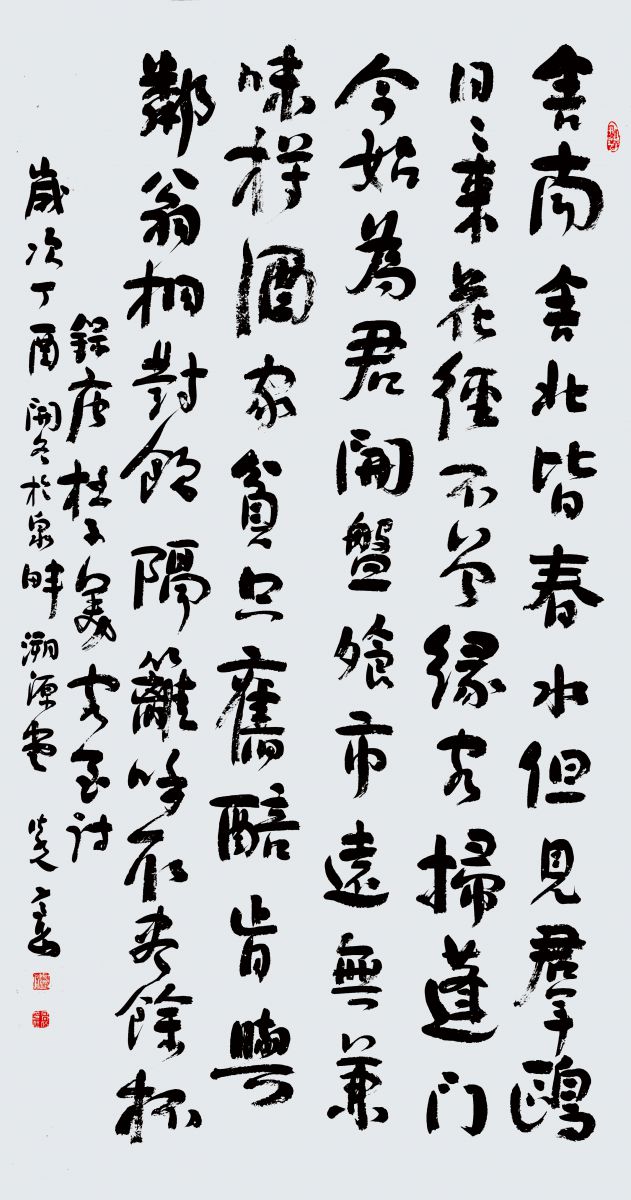 舍南舍北皆春水但見羣鷗
日々來花徑不曾緣客掃蓬門
今始為君開盤飧市遠無兼
味樽酒家貧只舊醅肯與
鄰翁相對飲隔籬呼取盡餘杯
錄唐杜子美客至詩
歲次丁酉開冬於泉畔溯源堂